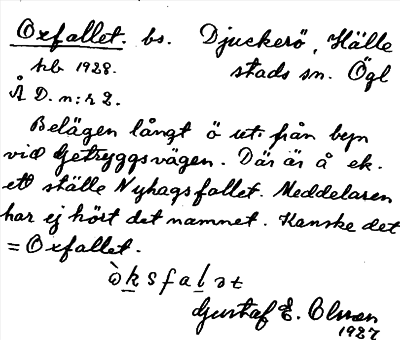 Oxfallet. bs. Djuckerö, Hälle
hb 1928. stads sn. Ögl
Å D. n:r 2.
Belägen långt ö ut från byn
vid Getryggsvägen. Där är å ek.
ett ställe Nyhagsfallet. Meddelaren
har ej hört det namnet. Kanske det
= Oxfallet.
ò̀k̲sfal̲ət
Gustaf E. Olsson
1927